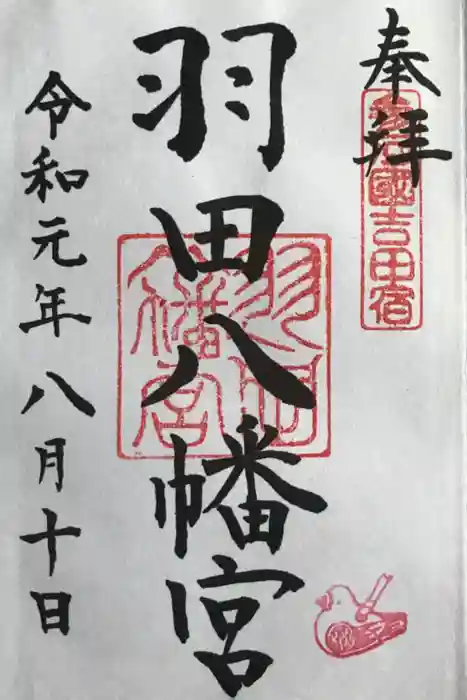 奉拝
參河國吉田宿
羽田八幡宮
羽田八幡宮
令和元年八月十日